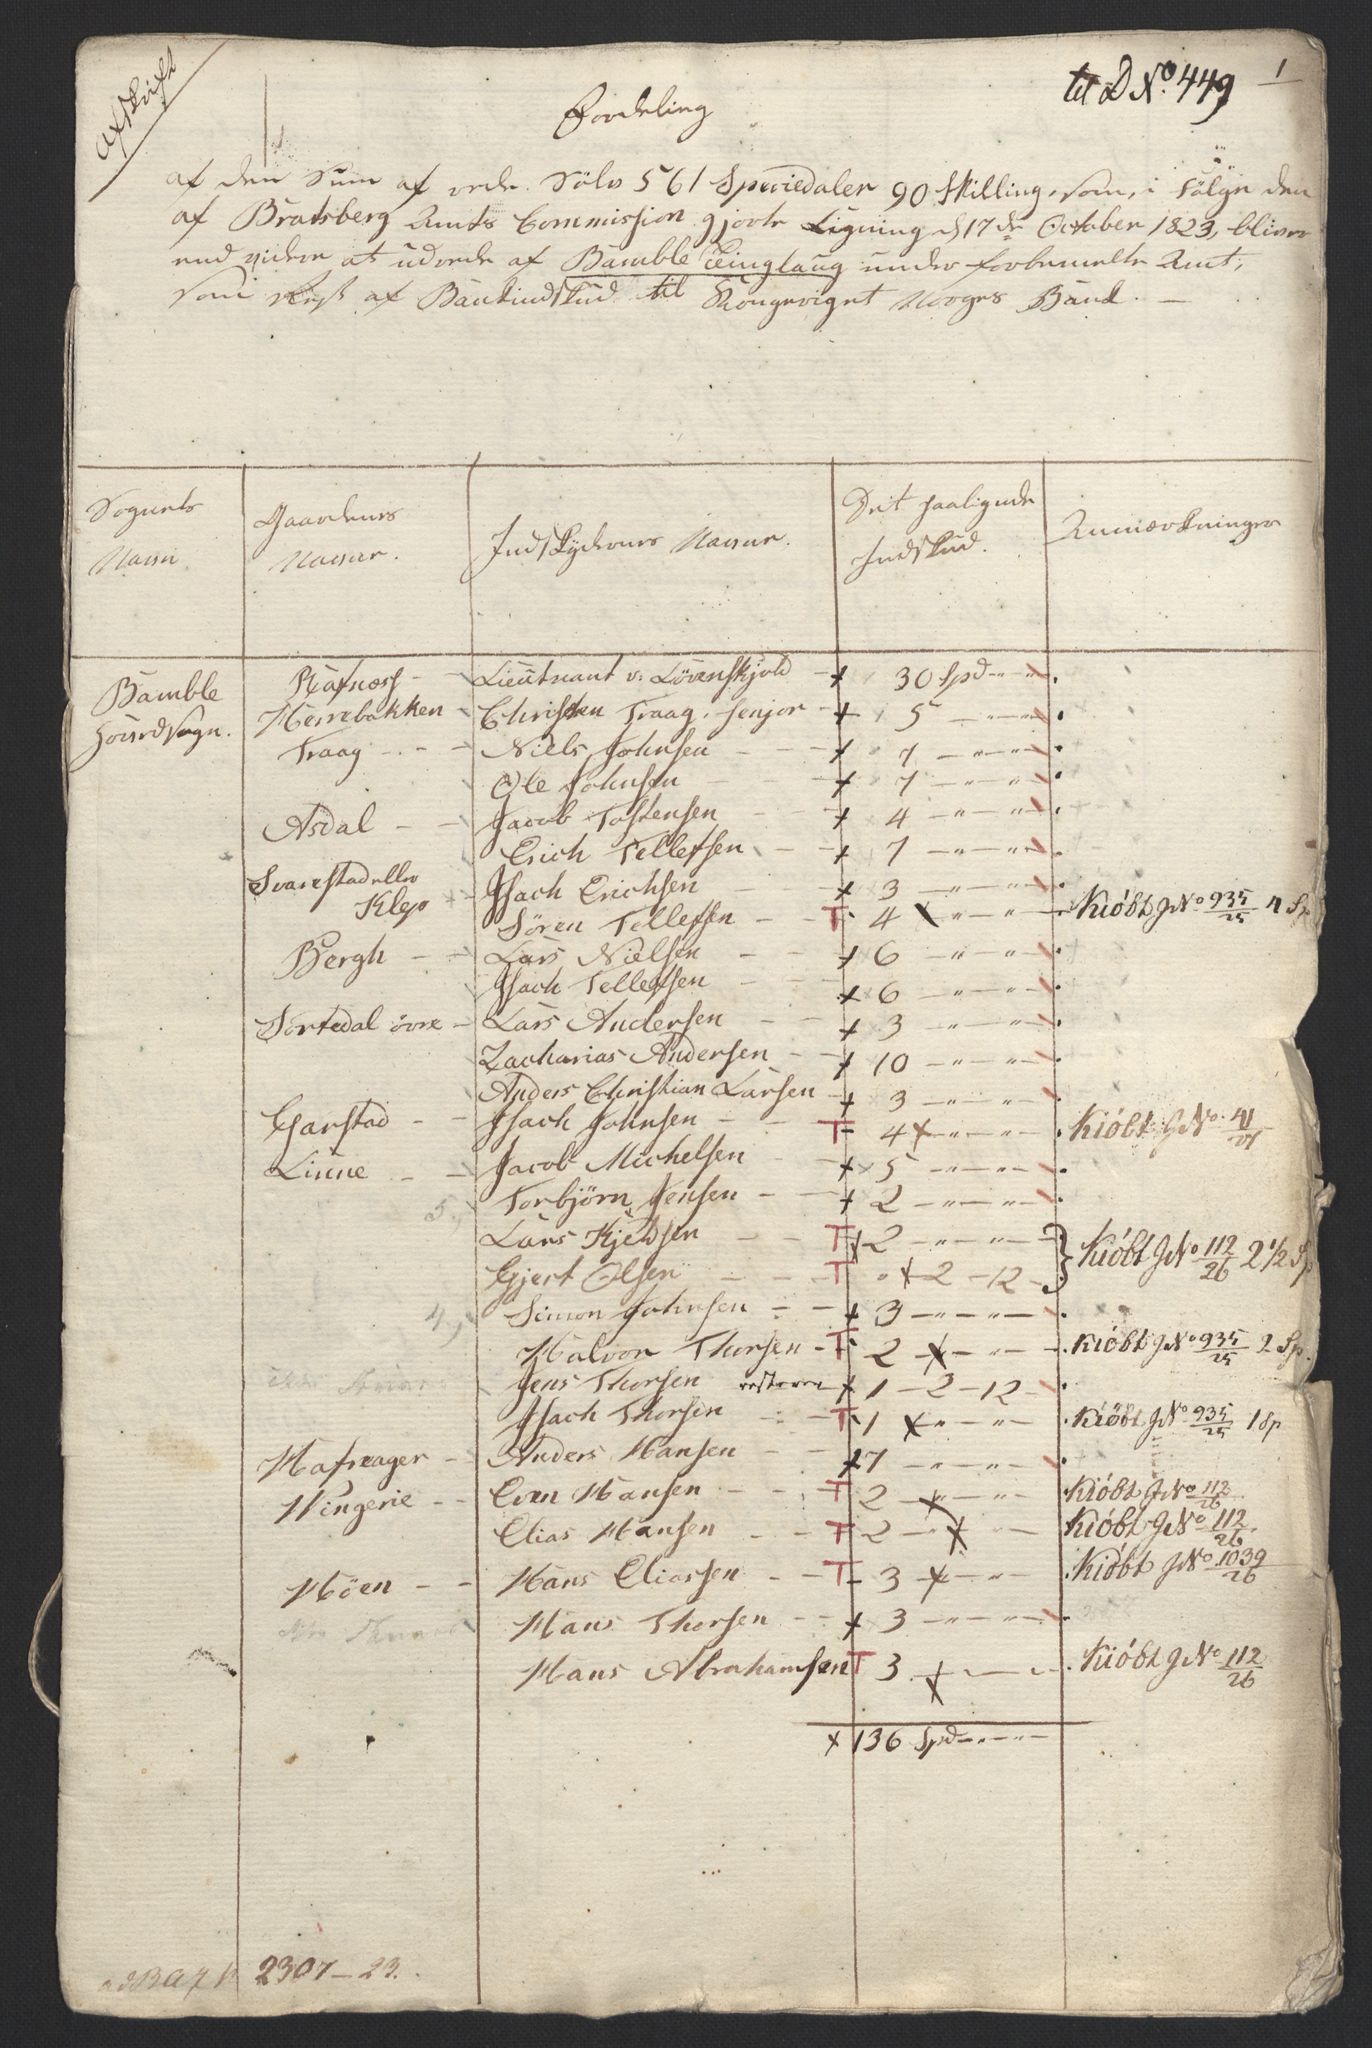 Afskrift
til D No. 449
1
Fordeling
af den Sum af rede Sölv 561 Speciedaler 90 Skilling, som, i Fölge den
af Bratsberg Amts Commission gjorte Ligning d 17de October 1823, bliver
end videre at udrede af Bamble Tinglaug under forbemelte Amt,
som Rest af Bankindskud til Kongeriget Norges Bank. —
Sognets Navn
Gaardenes Navne.
Indskydernes Navne.
Det paalignede Indskud.
Anmærkninger
Bamble Hovedsogn. Rafnæss - Lieutnant v: Lövenskjold + 30 Spd - " - " -
Herrebakken - Christen Traag, senjor - + 5 - " - " -
Traag - - - Niels Johnsen - - + 7 - " - " -
Ole Johnsen - - + 7 - " - " -
Asdal - - Jacob Tostensen - + 4 - " - " -
Erich Tellefsen - - + 7 - " - " -
Svarstad eller Klep - Isach Erichsen - - + 3 - " - " -
Sören Tellefsen - - T 4 x " - " - Kiöbt J No 935/25 4 Sp
Bergh - - Lars Nielsen - - + 6 - " - " -
Isach Tellefsen - - + 6 - " - " -
Sortedal övre - Lars Andersen - - + 3 - " - " -
Zacharias Andersen - - + 10 - " - " -
Anders Christian Larsen - + 3 - " - " -
Garstad - Isach Johnsen - - T 4 x - " - " - Kiöbt J No. 41/27
Linne - - Jacob Michelsen - - + 5 - " - " -
5, Torbjörn Jensen - - + 2 - " - " -
Lars Kjeldsen - - T x 2 - " - " -
Gjert Olsen - - T " x 2 - 12 - } Kiöbt J No 112/26 2 1/2 Sp
4, Simon Johnsen - - + 3 - " - " -
Halvor Thorsen - T 2 x - " - Kiöbt J No 935/25 2 Sp.
Jens Thorsen resterer + 1 - 2 - 12 -
Isach Thorsen - - T 1 x " - " - Kiöbt J No 935/25 1 Sp
Hafreager - Anders Hansen - + 7 - " - " -
Hingerie - - Even Hansen - - T 2 - x " - " - Kiöbt J No 112/26
Elias Hansen - - T 2 - x " - Kiöbt J No 112/26.
Höen - - Hans Eliassen - - T 3 x - " - Kiöbt J No 1039/26
Hans Thorsen - - + 3 - " - " -
Hans Abrahamsen T 3 x - - Kiöbt J No 112/26
x 136 Spd - " - " -
2307 - 23.